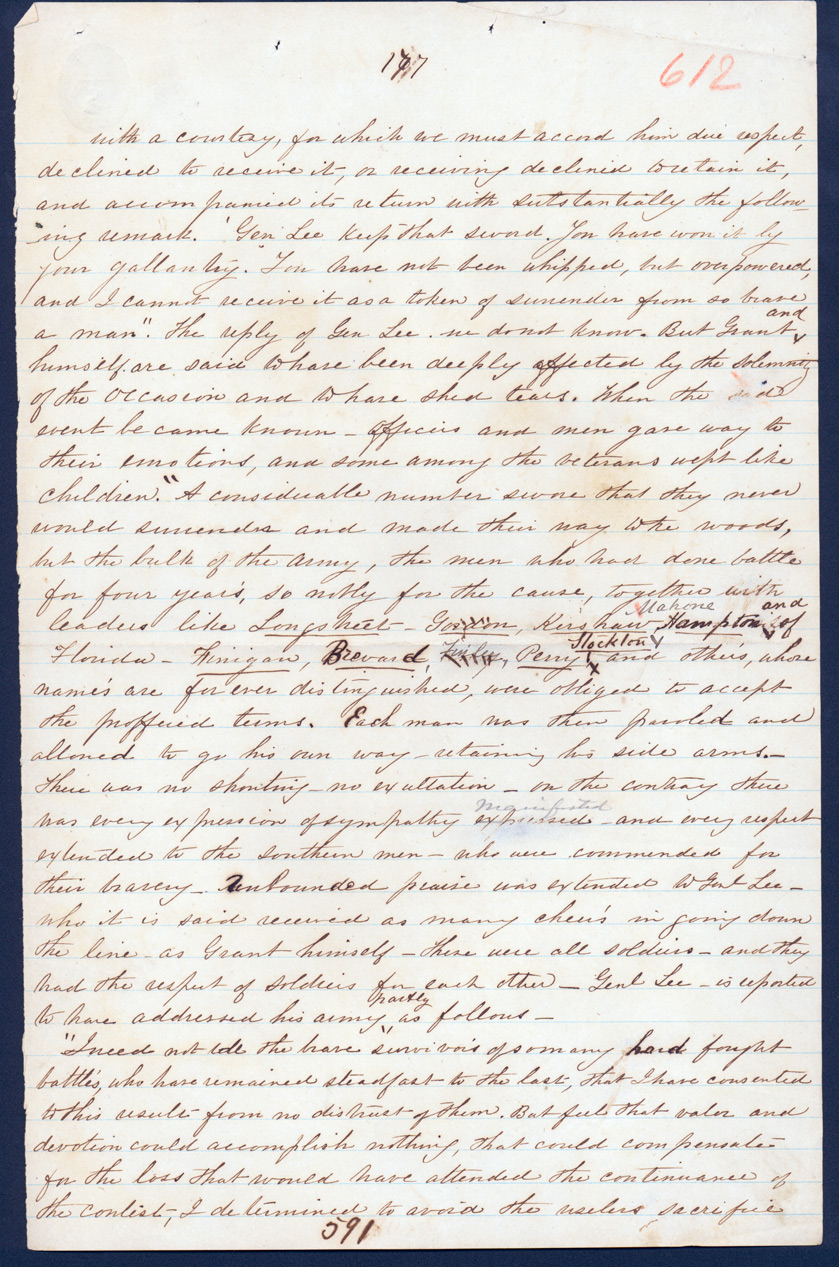 167
612
with a courtesy, for which we must accord him due respect,
declined to receive it, or receiving declined to retain it,
and accompanied its return with substantially the follow-
ing remark. "Gen Lee keep that sword. You have won it by
your gallantry. You have not been whipped, but overpowered,
and I cannot receive it as a token of surrender from so brave
a man". The reply of Gen Lee we do not know. But Grant and
himself are said to have been deeply affected by the solemnity
of the occasion and to have shed tears. When the sad
event became known - officers and men gave way to
their emotions, and some among the veterans wept like
children." A considerable number swore that they never
would surrender and made their way to the woods,
but the bulk of the army, the men who had done battle
for four years, so nobly for the cause, together with
leaders like Longstreet - Gordon, Kershaw Mahone Hampton and of
Florida - Finigan, Brevard, Finley, Perry, Stockton and others, whose
names are for ever distinguished, were obliged to accept
the proffered terms. Each man was then paroled and
allowed to go his own way - retaining his side arms. -
There was no shouting - no exultation - on the contrary there
was every expression of sympathy expressed manifested - and every respect
extended to the southern men - who were commended for
their bravery - Unbounded praise was extended to Genl Lee -
who it is said received as many cheers in going down
the line - as Grant himself - These were all soldiers - and they
had the respect of soldiers for each other - Genl Lee - is reported
to have addressed his army partly as follows -
"I need not tell the brave survivors of so many hard fought
battles, who have remained steadfast to the last, that I have consented
to this result from no distrust of them. But feel that valor and
devotion could accomplish nothing, that could compensate
for the loss that would have attended the continuance of
the contest, I determined to avoid the useless sacrifice
591